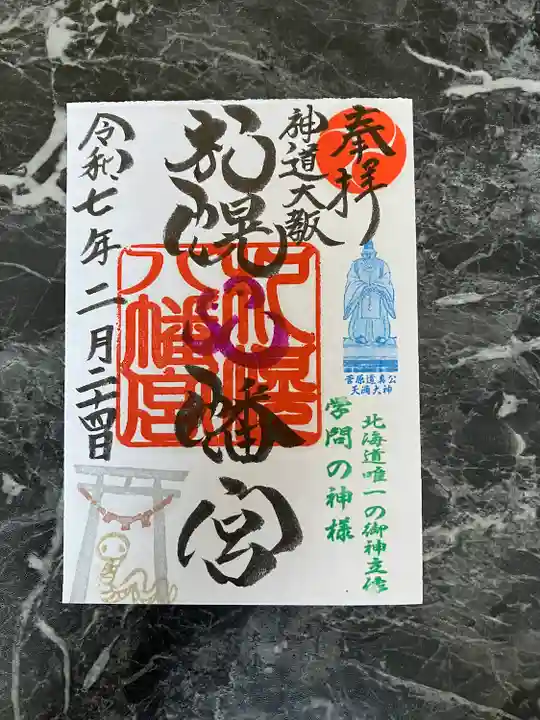 奉拝
神道大教
札幌八幡宮
札幌
八幡宮
令和七年二月二十四日
菅原道真公
天満大神
学問の神様
北海道唯一の御神立像